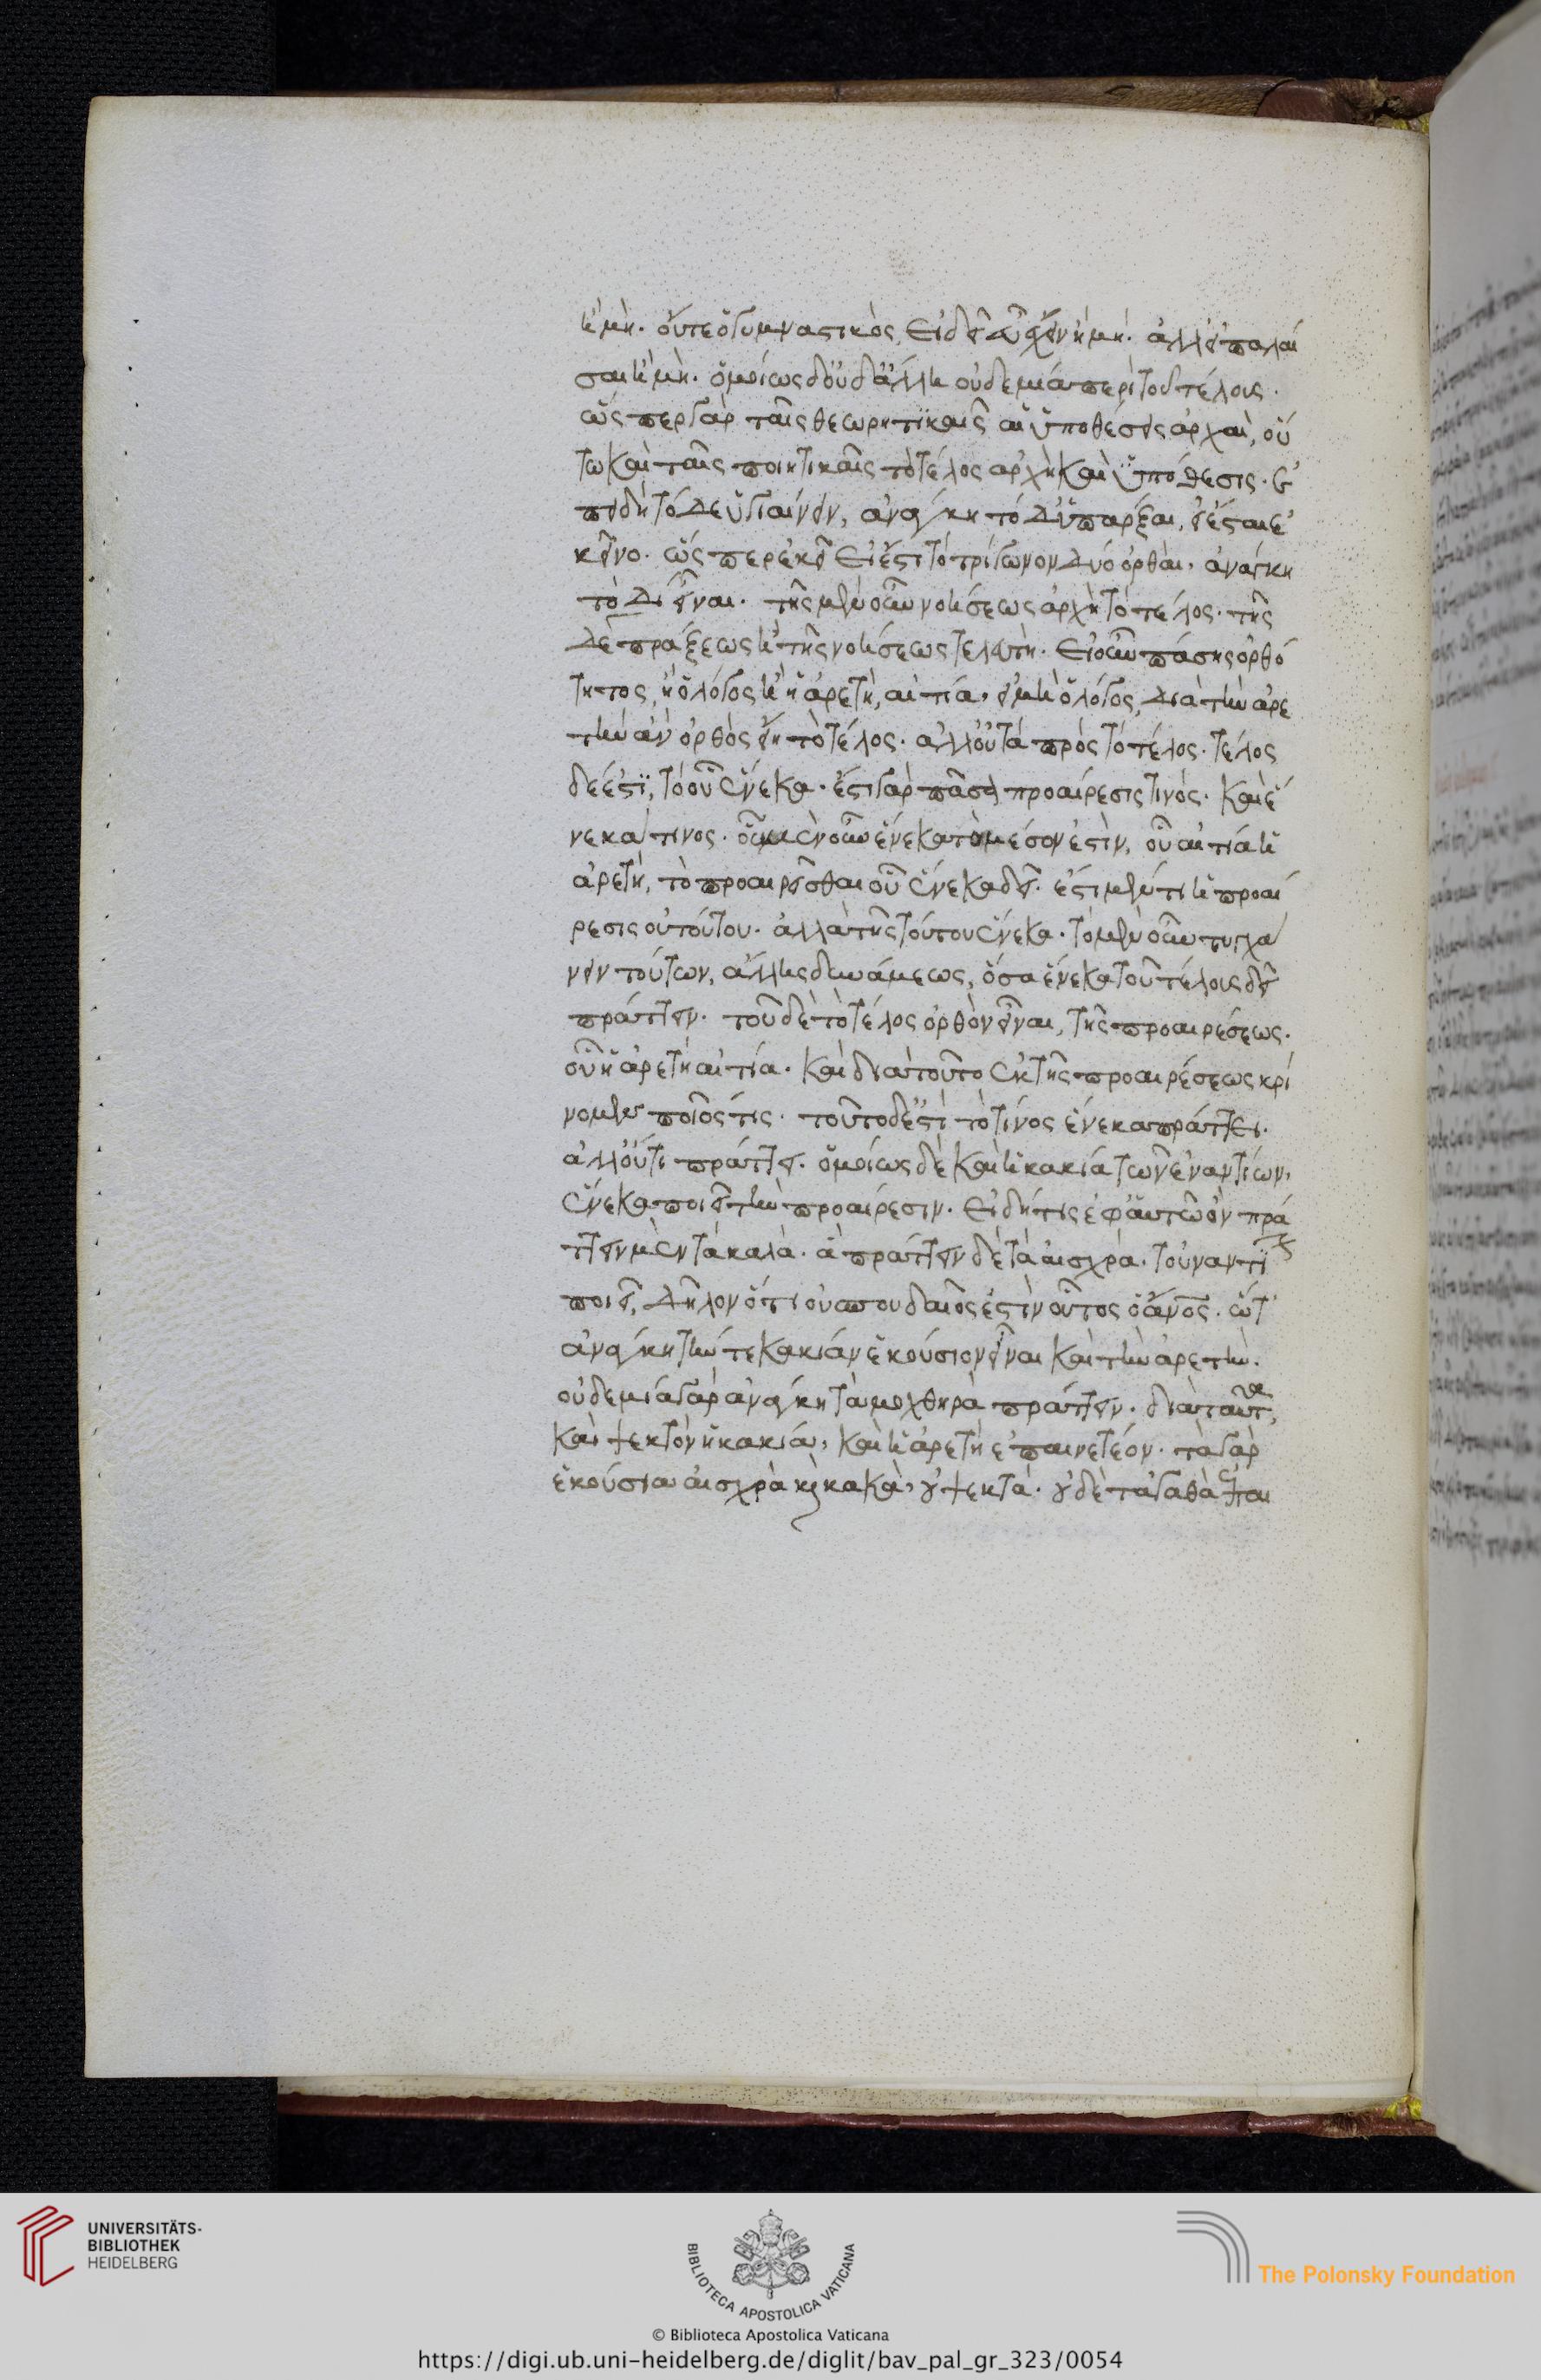 ἢ μή. οὔτε ὁ γυμναστικὸς, εἰ δεῖ εὖ ἔχειν ἢ μή. ἀλλ' εἰ παλαί
σαι ἢ μή. ὁμοίως δ' οὐδ' ἄλλη οὐδεμία περὶ τοῦ τέλους.
ὥσπερ γὰρ ταῖς θεωρητικαῖς αἱ ὑποθέσεις ἀρχαὶ, οὕ
τω καὶ ταῖς ποιητικαῖς τὸ τέλος ἀρχὴ καὶ ὑπόθεσις. ἐ
πειδὴ τόδε ὑγιαίνειν, ἀνάγκη τὸ δὶ ὑπάρξαι, εἰ ἔσται ἐ
κεῖνο. ὥσπερ ἐκεῖ εἰ ἔστι τὸ τρίγωνον δύο ὀρθαὶ, ἀνάγκη
τὸ δὶ εἶναι. τῆς μὲν οὖν νοήσεως ἀρχὴ τὸ τέλος. τῆς
δὲ πράξεως ἡ τῆς νοήσεως τελευτή. εἰ οὖν πάσης ὀρθό
τητος, ἢ ὁ λόγος ἢ ἡ ἀρετὴ, αἰτία, εἰ μὴ ὁ λόγος, διὰ τὴν ἀρε
τὴν ἂν ὀρθὸς εἴη τὸ τέλος. ἀλλ' οὐ τὰ πρὸς τὸ τέλος. τέλος
δέ ἐστι, τὸ οὗ ἕνεκα. ἔστι γὰρ πᾶσα προαίρεσις τινὸς. καὶ ἕ
νεκα τινος. οὗ μὲν οὖν ἕνεκα τὸ μέσον ἐστὶν, οὗ αἰτία ἡ
ἀρετὴ, τὸ προαιρεῖσθαι οὗ ἕνεκα δεῖ. ἔστι μέντι ἡ προαί
ρεσις οὐ τούτου. ἀλλὰ τῆς τούτου ἕνεκα. τὸ μὲν οὖν τυγχά
νειν τούτων, ἄλλης δυνάμεως, ὅσα ἕνεκα τοῦ τέλους δεῖ
πράττειν. τοῦ δὲ τὸ τέλος ὀρθὸν εἶναι, τῆς προαιρέσεως.
οὗ ἡ ἀρετὴ αἰτία. καὶ διὰ τοῦτο ἐκ τῆς προαιρέσεως κρί
νομεν ποῖος τις. τοῦτο δ' ἐστὶ τὸ τίνος ἕνεκα πράττει.
ἀλλ' οὐ τί πράττει. ὁμοίως δὲ καὶ ἡ κακία τῶν ἐναντίων,
ἕνεκα ποιεῖ τὴν προαίρεσιν. εἰ δή τις ἐφ' αὑτῶ ὂν πρά
ττειν μὲν τὰ καλὰ. ἀπράττειν δὲ τὰ αἰσχρὰ. τοὐναντί
ποιεῖ, δῆλον ὅτι οὐ σπουδαῖος ἐστὶν οὗτος ὁ ἄνος. ὥστ'
ἀνάγκη τήν τε κακίαν ἑκούσιον εἶναι καὶ τὴν ἀρετὴν.
οὐδεμία γὰρ ἀνάγκη τὰ μοχθηρὰ πράττειν. διὰ ταῦτ,
καὶ ψεκτὸν ἡ κακία, καὶ ἡ ἀρετὴ ἐπαινετέον. τὰ γὰρ
ἑκούσια αἰσχρὰ κὶ κακὰ, ψεκτὰ. δὲ τἀγαθὰ ἐπαι
UNIVERSITÄTS-
BIBLIOTHEK
HEIDELBERG
BIBLIOTECA APOSTOLICA VATICANA
The Polonsky Foundation
© Biblioteca Apostolica Vaticana
https://digi.ub.uni-heidelberg.de/diglit/bav_pal_gr_323/0054